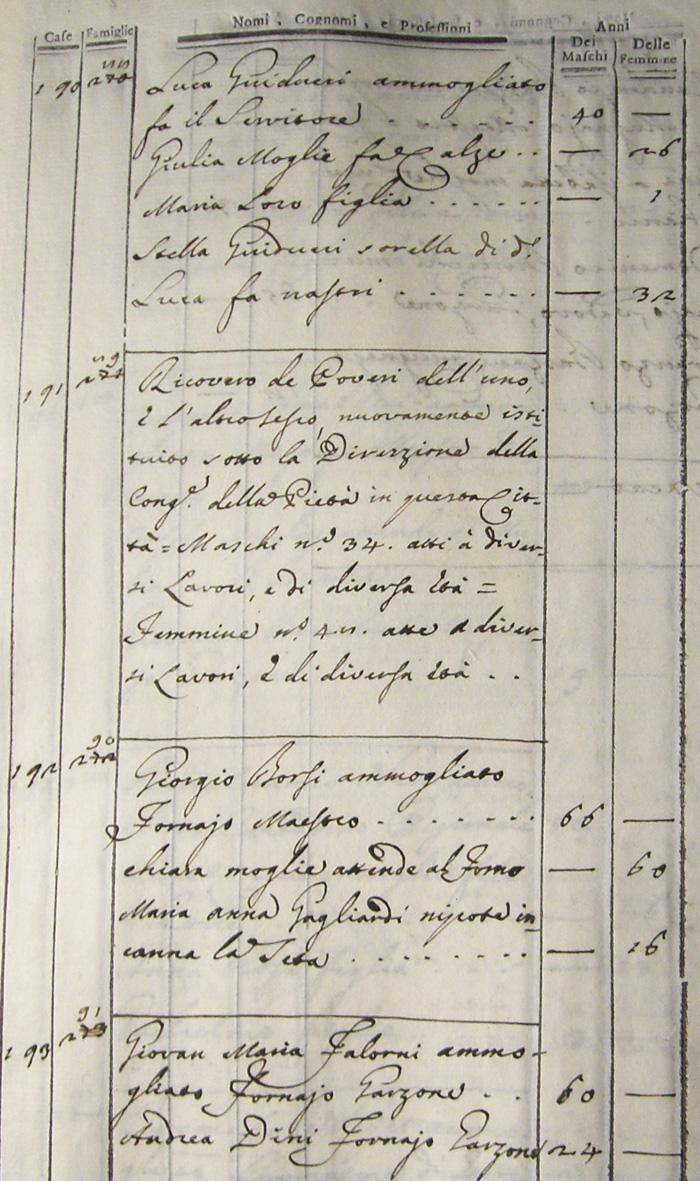 Case Famiglie Nomi, Cognomi, e Professioni Anni
Dei Maschi Delle Femmine
190 Luca Guiducci ammogliato
fa il Servitore - - - - - - 40 —
Giulia Moglie fa Calze . . — 26
Maria Loro figlia . . . . . . — 1
Stella Guiducci sorella di d.º
Luca fa nastri - - - - - - — 32
191 Ricovero de Poveri dell'uno,
e l'altro sesso, nuovamente isti-
tuito sotto la Direzzione della
Cong.e della Pietà in questa Cit-
tà = Maschi n.º 34. atti à diver-
si Lavori, e di diversa età =
Femmine n.º atte a diver-
si Lavori, e di diversa età . .
192 90 Giorgio Borsi ammogliato
Fornajo Maestro - - - - - - - 66 —
chiara moglie attende al forno — 60
Maria anna Gagliardi nipote in-
canna la Seta . - - - - - - - — 16
193 91 Giovan Maria Falorni ammo-
gliato Fornajo Garzone - . 60 —
Andrea Dini Fornajo Garzone 24 —